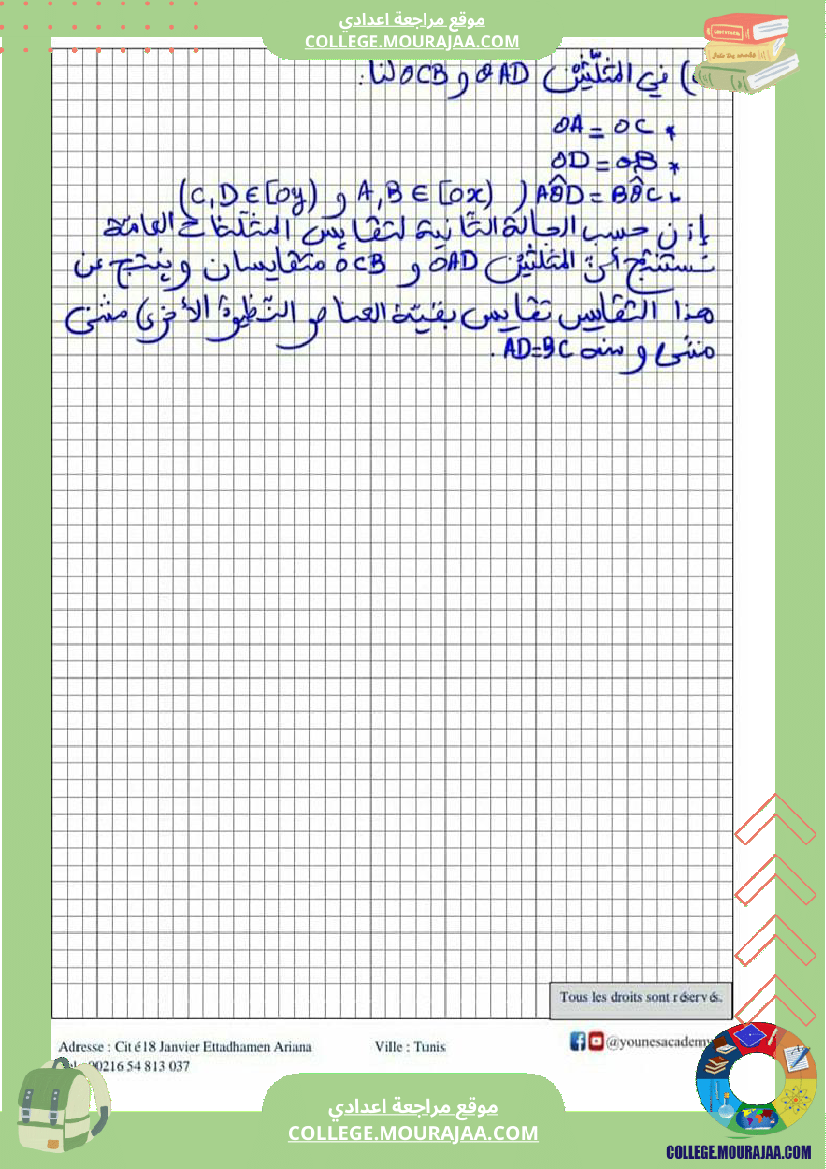 موقع مراجعة اعدادي
COLLEGE.MOURAJAA.COM
) في المثلّثين OAD و OCB لنا:
* OA = OC
* OD = OB
* AÔD = BÔC (A,B ∈ [ox) و C,D ∈ [oy)
إذن حسب الحالة الثانية لتقايس المثلثات العامة
نستنتج أنّ المثلثين OAD و OCB متقايسان وينتج عن
هذا التقايس تقايس بقيّة العناصر النّظيرة الأخرى مثنى
مثنى و منه AD=BC.
Tous les droits sont réservés.
Adresse : Cité 18 Janvier Ettadhamen Ariana
Ville : Tunis
@younesacademy
00216 54 813 037
موقع مراجعة اعدادي
COLLEGE.MOURAJAA.COM
COLLEGE.MOURAJAA.COM